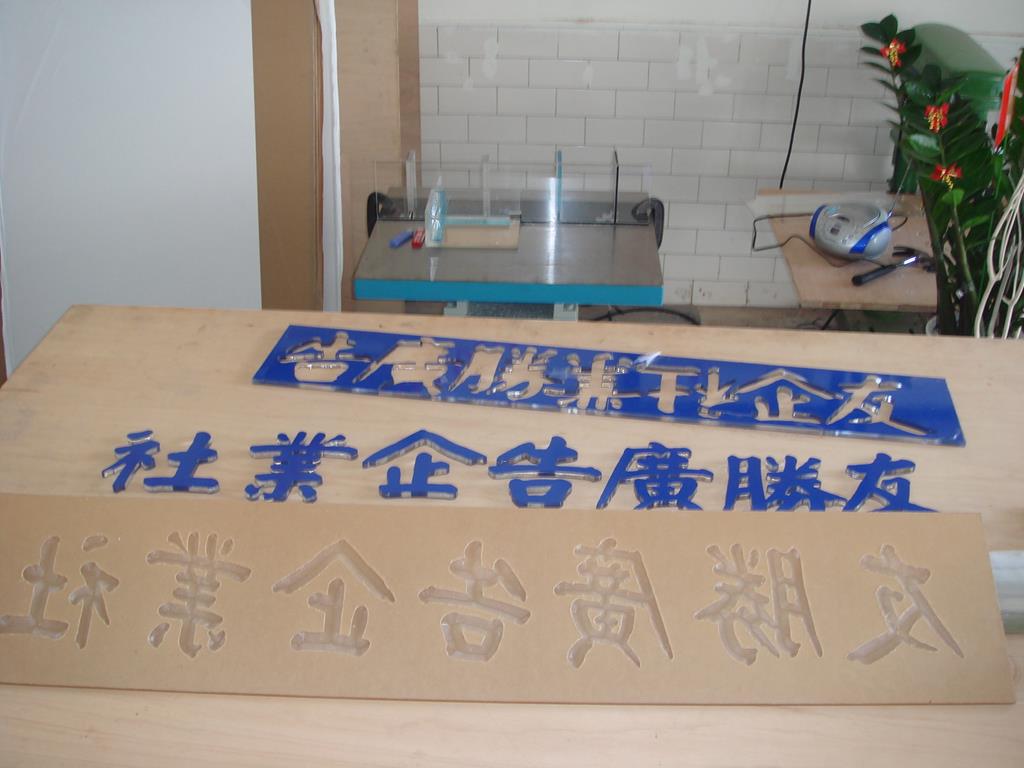 友企社業勝廣告
友勝廣告企業社
友勝廣告企業社